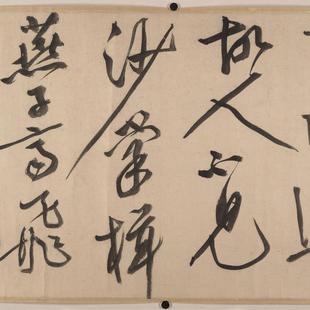 故人不見
沙棠楫
燕子高飛